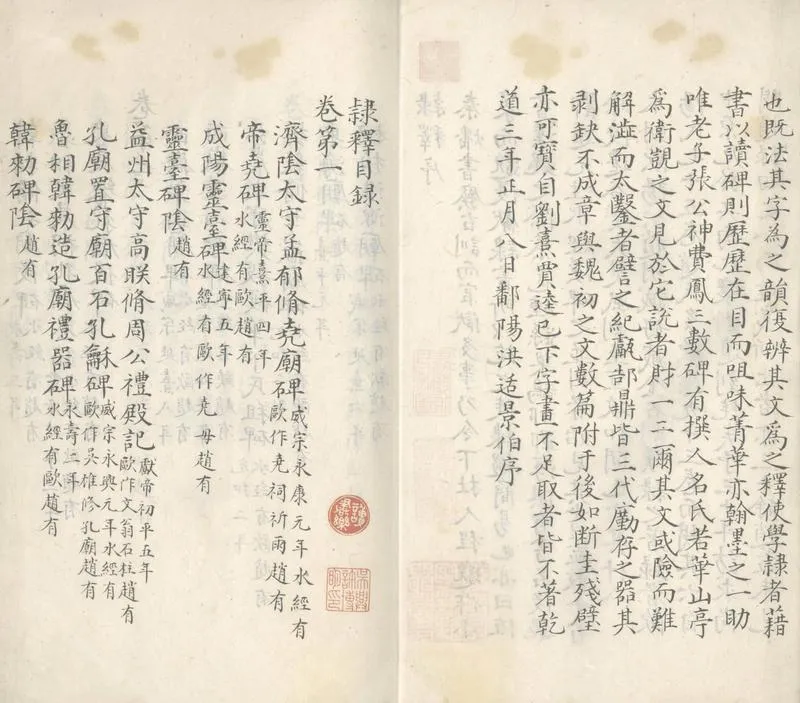 也既法其字為之韻復辨其文為之釋使學隸者藉
書以讀碑則歷歷在目而咀味菁華亦翰墨之一助
唯老子張公神費鳳三數碑有撰人名氏若華山亭
為衛覬之文見於它說者財一二爾其文或險而難
解澁而太鑿者譬之紀甗郜鼎皆三代廟存之器其
剥缺不成章與魏初之文數篇附于後如斷圭殘璧
亦可寶自劉熹賈逵已下字畫不足取者皆不著乾
道三年正月八日鄱陽洪适景伯序
隸釋目録
卷第一
濟陰太守孟郁脩堯廟碑威宗永康元年水經有歐作堯祠祈雨趙有
帝堯碑靈帝熹平四年水經有歐趙有
成陽靈臺碑建寧五年水經有歐作堯母趙有
靈臺碑陰趙有
益州太守高朕脩周公禮殿記獻帝初平五年歐作文翁石柱趙有
孔廟置守廟百石孔龢碑威宗永興元年水經有歐作吳雄修孔廟趙有
魯相韓勑造孔廟禮器碑永壽二年水經有歐趙有
韓勑碑陰趙有